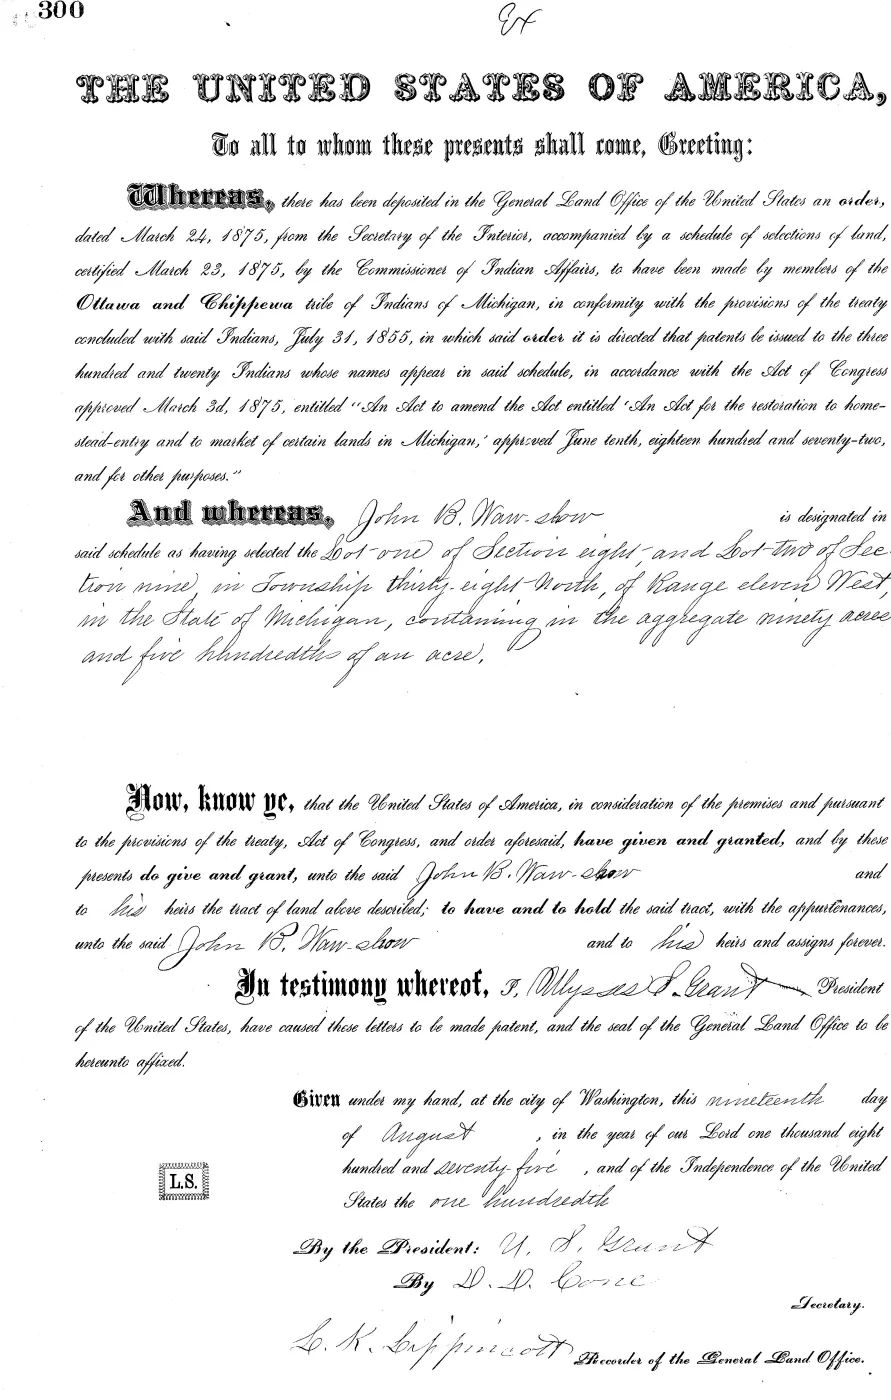 300
Ex
THE UNITED STATES OF AMERICA,
To all to whom these presents shall come, Greeting:
Whereas, there has been deposited in the General Land Office of the United States an order,
dated March 24, 1875, from the Secretary of the Interior, accompanied by a schedule of selections of land,
certified March 23, 1875, by the Commissioner of Indian Affairs, to have been made by members of the
Ottawa and Chippewa tribe of Indians of Michigan, in conformity with the provisions of the treaty
concluded with said Indians, July 31, 1855, in which said order it is directed that patents be issued to the three
hundred and twenty Indians whose names appear in said schedule, in accordance with the Act of Congress
approved March 3d, 1875, entitled "An Act to amend the Act entitled 'An Act for the restoration to home-
stead-entry and to market of certain lands in Michigan,' approved June tenth, eighteen hundred and seventy-two,
and for other purposes."
And whereas, John B. Waw-show is designated in
said schedule as having selected the Lot one of Section eight, and Lot two of Sec-
tion nine, in Township thirty-eight North, of Range eleven West,
in the State of Michigan, containing in the aggregate ninety acres
and five hundredths of an acre.
Now, know ye, that the United States of America, in consideration of the premises and pursuant
to the provisions of the treaty, Act of Congress, and order aforesaid, have given and granted, and by these
presents do give and grant, unto the said John B. Waw-show and
to his heirs the tract of land above described; to have and to hold the said tract, with the appurtenances,
unto the said John B. Waw-show and to his heirs and assigns forever.
In testimony whereof, I, Ulysses S. Grant President
of the United States, have caused these letters to be made patent, and the seal of the General Land Office to be
hereunto affixed.
Given under my hand, at the city of Washington, this nineteenth day
of August, in the year of our Lord one thousand eight
hundred and seventy-five, and of the Independence of the United
States the one hundredth
L.S.
By the President: U. S. Grant
By D. D. Cone
Secretary.
L. K. Lippincott Recorder of the General Land Office.